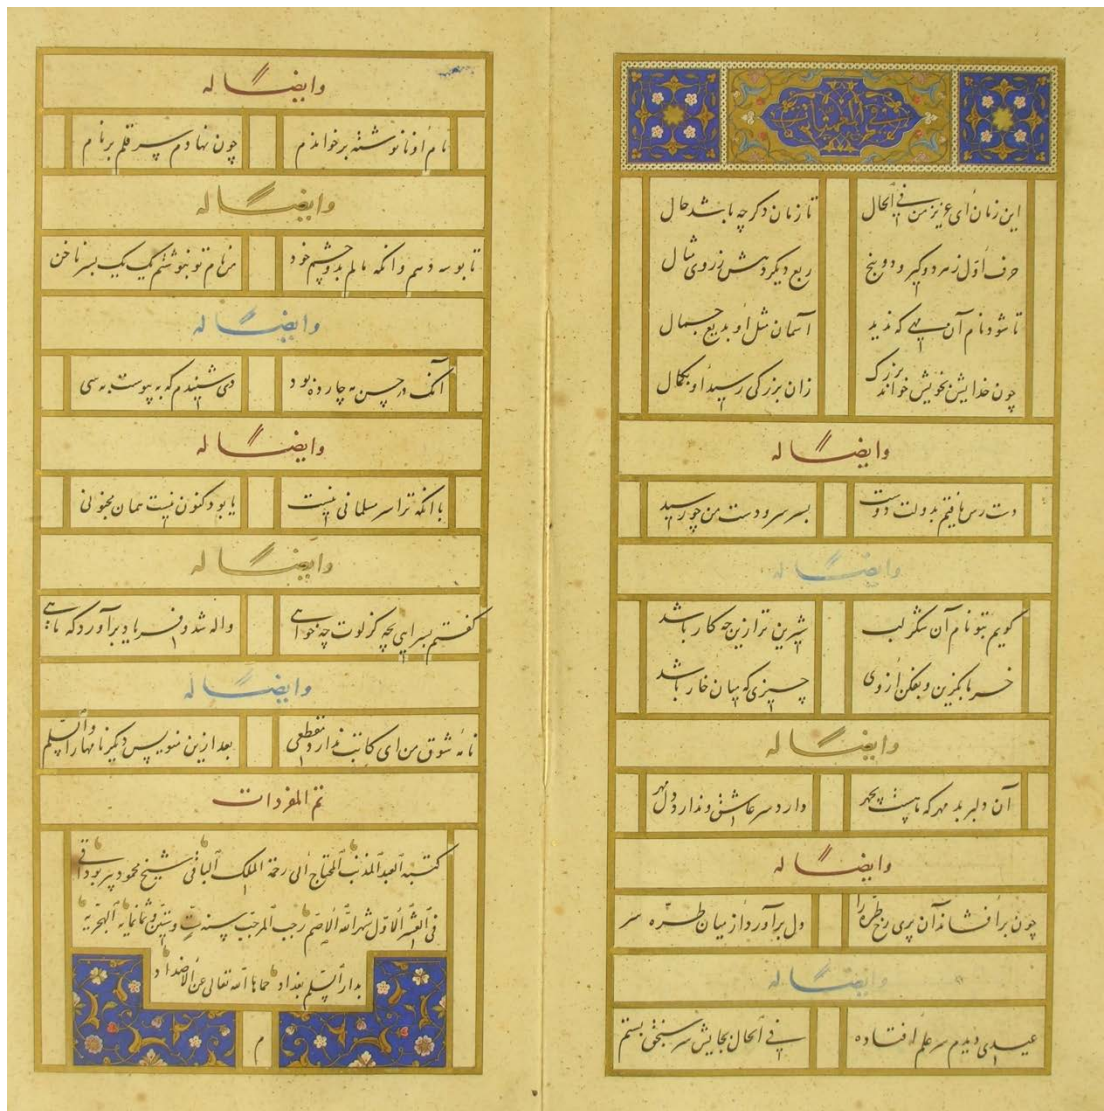 فی المعمیات
این زمان ای عزیز من فی الحال تا زمان دگر چه باشد حال
حرف اول زمه دو گیر و دو پنج ربع دیگر دهش ز روی مثال
تا شود نام آن مهی که ندید آسمان مثل او بدیع جمال
چون خدایش بخویش خواند بزرگ زان بزرگی رسید او بکمال
وایضاً له
دست رس یافتم بدولت دوست بسر سرو دست من چو رسید
وایضاً له
کویم بتو نام آن شکر لب شیرین تر ازین چه کار باشد
خرما بگزین و بفکن از وی چیزی که میان خار باشد
وایضاً له
آن دلبر بد مهر که هست پنجهر دارد سر عاشق و ندارد دل مهر
وایضاً له
چون بر افشاند آن پری رخ طره را دل برآورد از میان طره سر
وایضاً له
عیدی دیدم سر علم افتاده فی الحال بجایش سر سنجق بستم
وایضاً له
نام او نانوشته برخواندم چون نهادم سر قلم بر نام
وایضاً له
تا بوسه دهم وانگه مالم بدو چشم خود من نام تو بنوشتم یک یک بسر ناخن
وایضاً له
آنک در حسن مه چارده بود دی شنیدم که به پیوست به سی
وایضاً له
با انکه ترا سر مسلمانی نیست یا بود کنون نیست همان میخوانی
وایضاً له
کفتم بسرای بچه کر لوت چه خواهی واله شد و فریاد برآورد که ماهی
وایضاً له
نامه شوق من ای کاتب ندارد مقطعی بعد ازین منویس دیگر نامها را والسلم
تم المفردات
کتبه العبد المذنب المحتاج الی رحمة الملک الباقی شیخ محمود پیر بوداقی
فی العشر الاول شهر الله الاصم رجب المرجب سنه ست وستین وثمانمایه الهجریه
بدار السلم بغداد حماها الله تعالی عن الاضداد
م